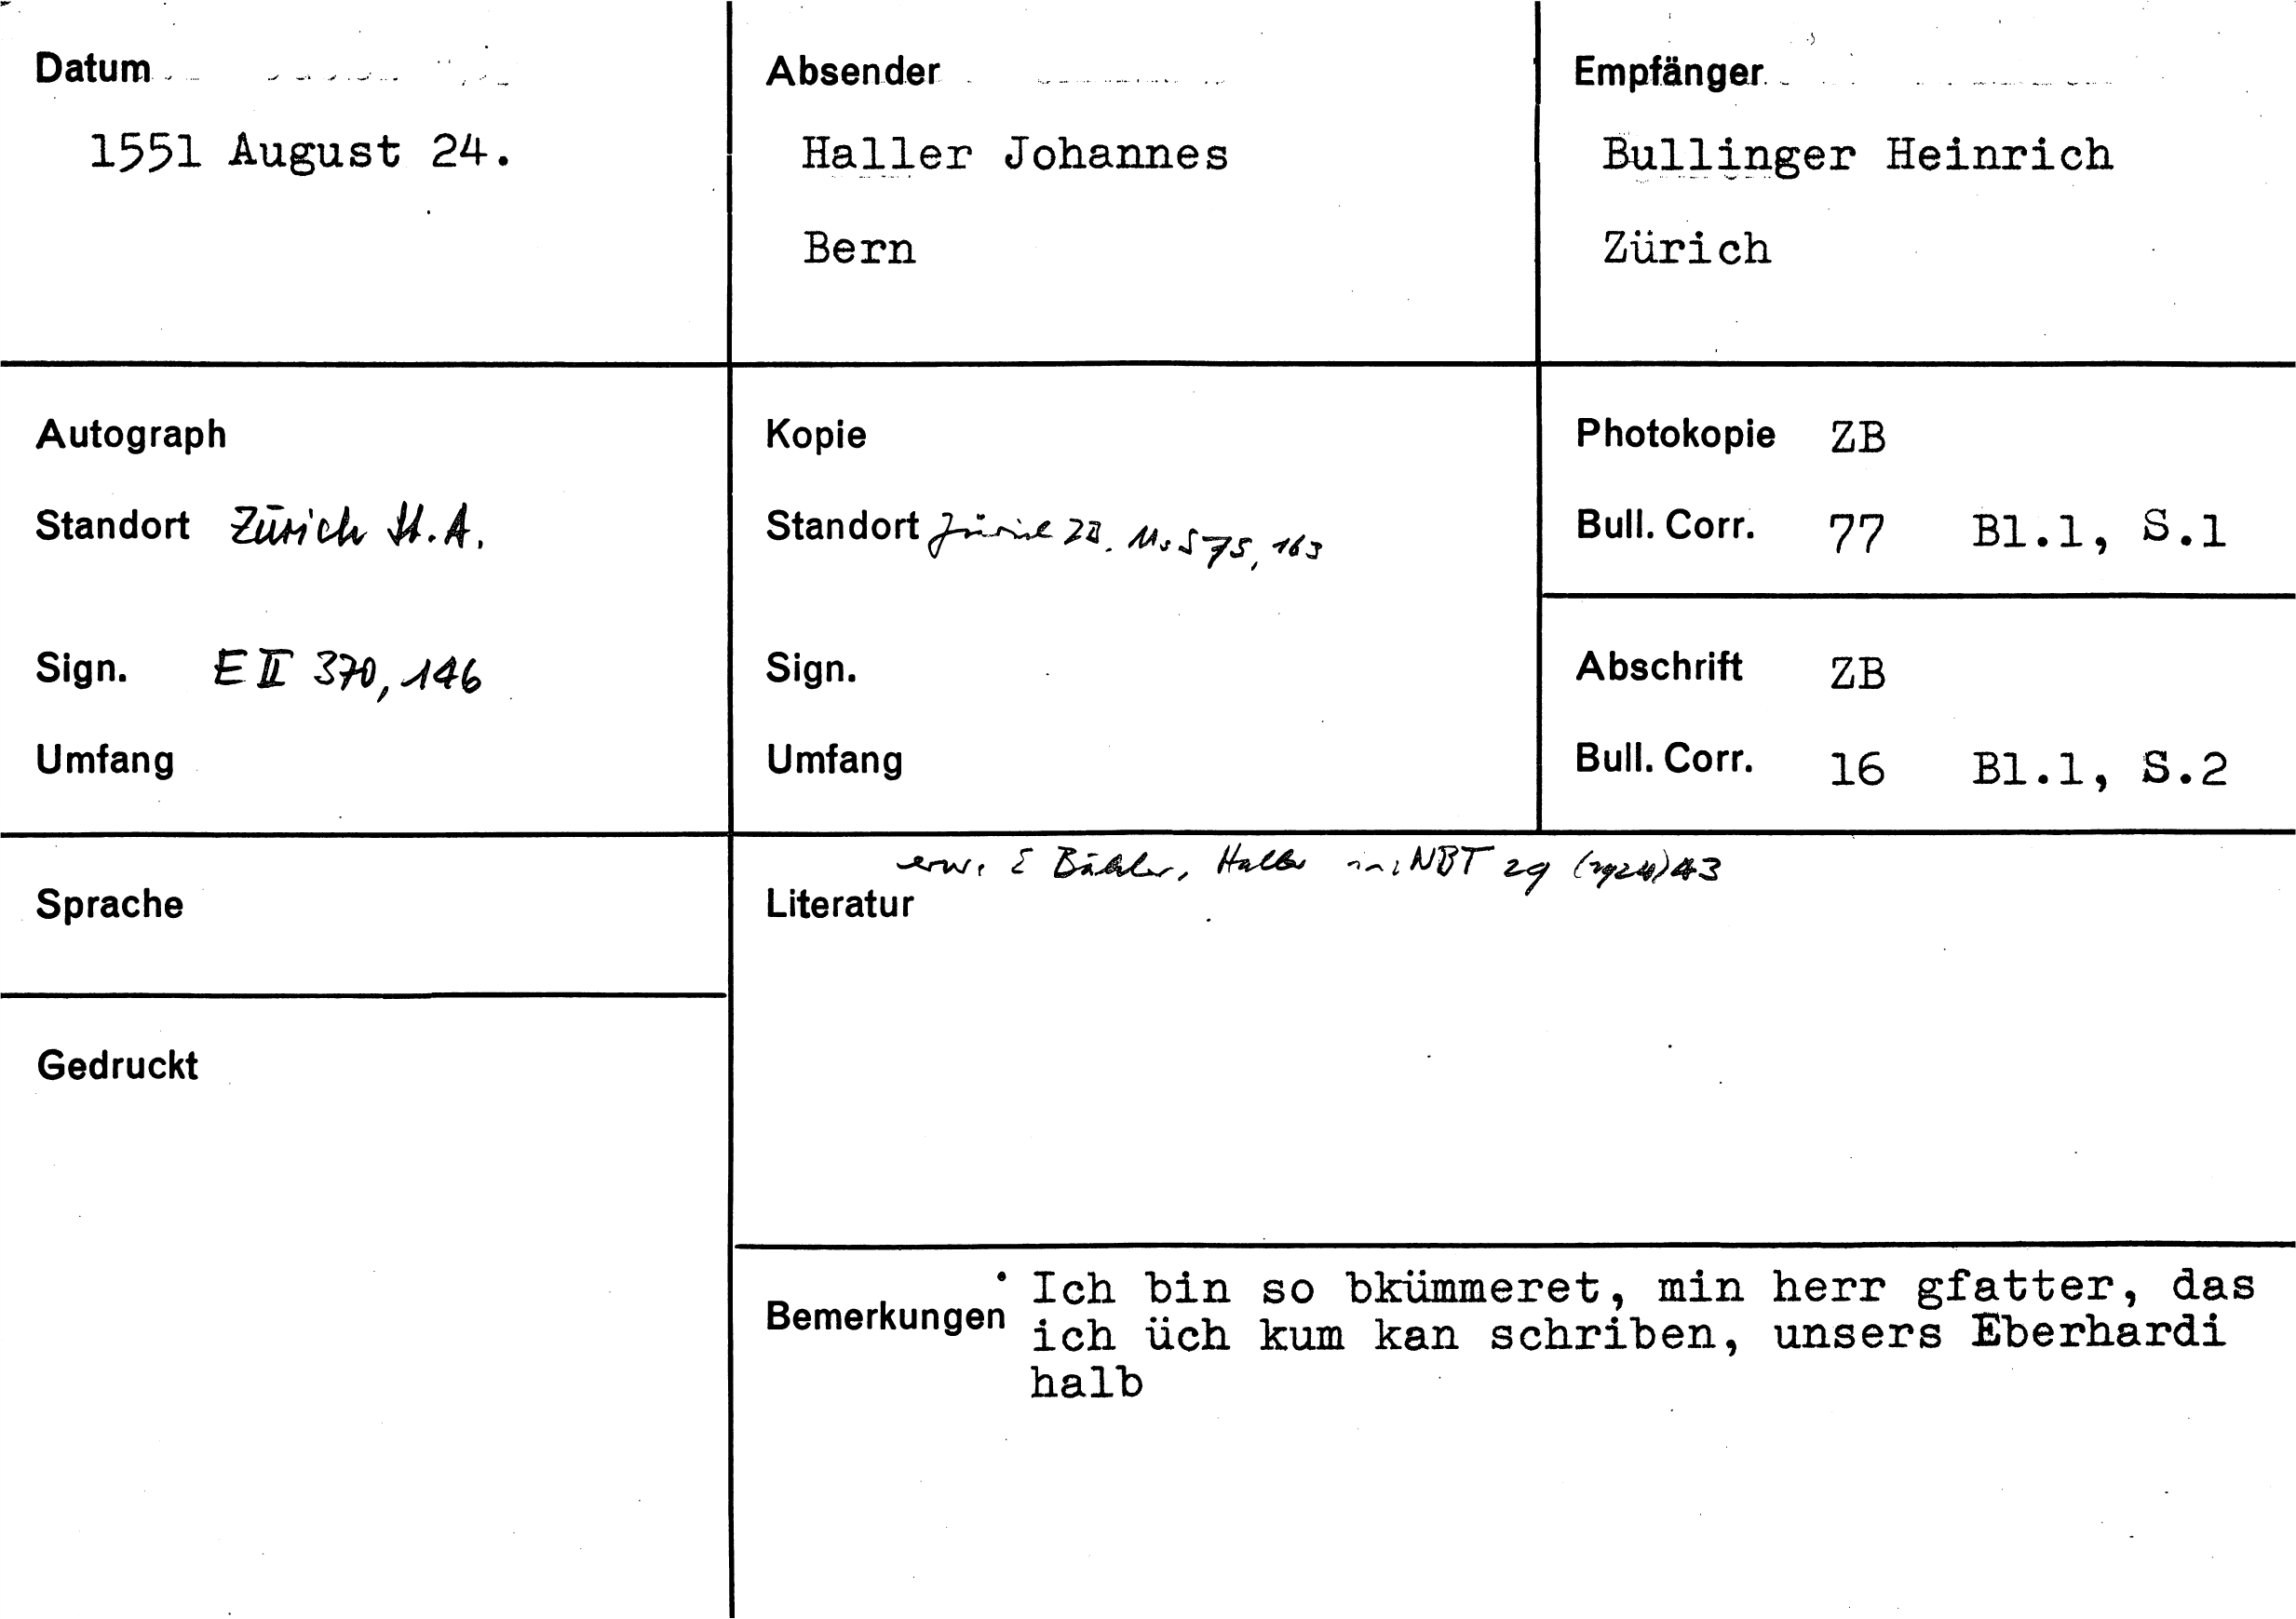 Datum
1551 August 24.
Absender
Haller Johannes
Bern
Empfänger
Bullinger Heinrich
Zürich
Autograph
Standort Zürich St.A.
Sign. E II 370, 146
Umfang
Kopie
Standort Zürich ZB. Ms S 75, 163
Sign.
Umfang
Photokopie ZB
Bull. Corr. 77 Bl.1, S.1
Abschrift ZB
Bull. Corr. 16 Bl.1, S.2
Sprache
Gedruckt
erw. E Bähler, Haller in: NBT 29 (1924) 43
Literatur
Bemerkungen
Ich bin so bkümmeret, min herr gfatter, das
ich üch kum kan schriben, unsers Eberhardi
halb